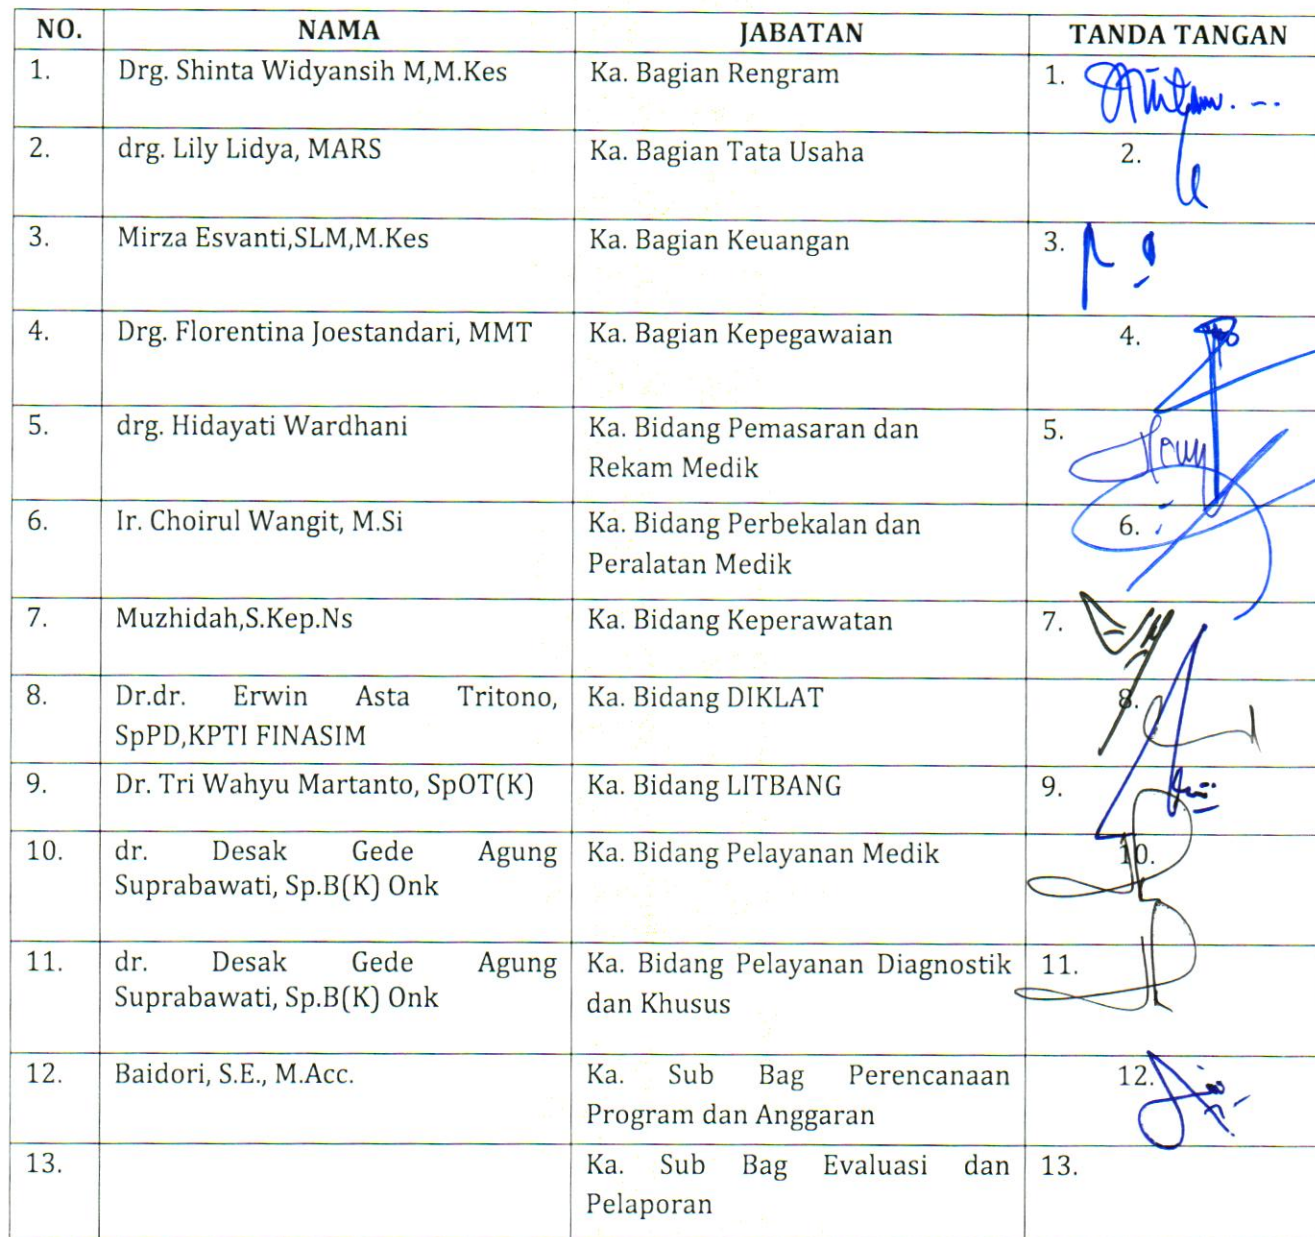 NO. NAMA JABATAN TANDA TANGAN
1. Drg. Shinta Widyansih M,M.Kes Ka. Bagian Rengram 1.
2. drg. Lily Lidya, MARS Ka. Bagian Tata Usaha 2.
3. Mirza Esvanti,SLM,M.Kes Ka. Bagian Keuangan 3.
4. Drg. Florentina Joestandari, MMT Ka. Bagian Kepegawaian 4.
5. drg. Hidayati Wardhani Ka. Bidang Pemasaran dan 5.
Rekam Medik
6. Ir. Choirul Wangit, M.Si Ka. Bidang Perbekalan dan 6.
Peralatan Medik
7. Muzhidah,S.Kep.Ns Ka. Bidang Keperawatan 7.
8. Dr.dr. Erwin Asta Tritono, Ka. Bidang DIKLAT 8.
SpPD,KPTI FINASIM
9. Dr. Tri Wahyu Martanto, SpOT(K) Ka. Bidang LITBANG 9.
10. dr. Desak Gede Agung Ka. Bidang Pelayanan Medik 10.
Suprabawati, Sp.B(K) Onk
11. dr. Desak Gede Agung Ka. Bidang Pelayanan Diagnostik 11.
Suprabawati, Sp.B(K) Onk dan Khusus
12. Baidori, S.E., M.Acc. Ka. Sub Bag Perencanaan 12.
Program dan Anggaran
13. Ka. Sub Bag Evaluasi dan 13.
Pelaporan